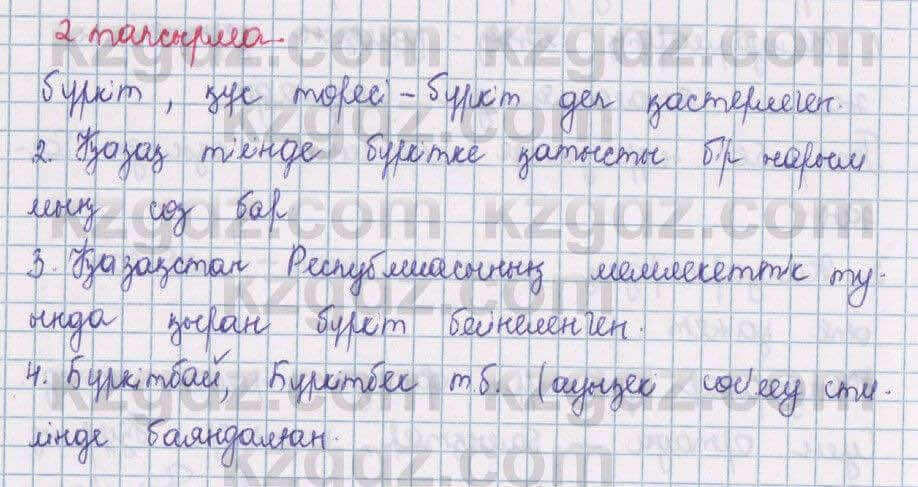 2 тапсырма.
бүркіт, құс төресі – бүркіт деп қастерлеген.
2. Қазақ тілінде бүркітке қатысты бір жарым
мың сөз бар
3. Қазақстан Республикасының мемлекеттік ту-
ында қыран бүркіт бейнеленген.
4. Бүркітбай, Бүркітбек т.б. (ауызекі сөйлеу сти-
лінде баяндалған.
kzgdz.com